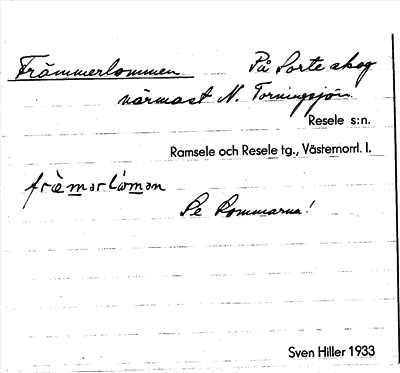 Främmerlommen På Sorte skog
närmast N. Torningsjön.
Resele s:n.
Ramsele och Resele tg., Västernorrl. l.
frä̀mərlòmən
Se Lommarna!
Sven Hiller 1933